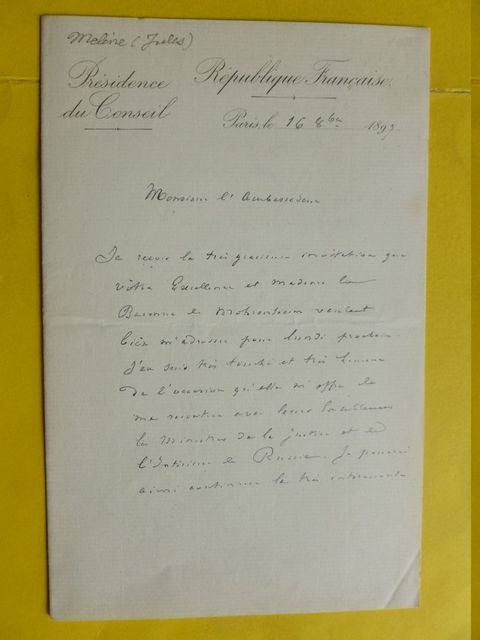 Meline (Jules)
Présidence du Conseil
République Française.
Paris, le 16 8bre 1897
Monsieur l'Ambassadeur
Je reçois la très gracieuse invitation que
votre Excellence et madame la
Baronne de Mohrenheim veulent
bien m'adresser pour lundi prochain
J'en suis très touché et très heureux
de l'occasion qu'elle m'offre de
me rencontrer avec leurs Excellences
les Ministres de la justice et de
l'Intérieur de Russie. Je pourrai
ainsi continuer la très intéressante